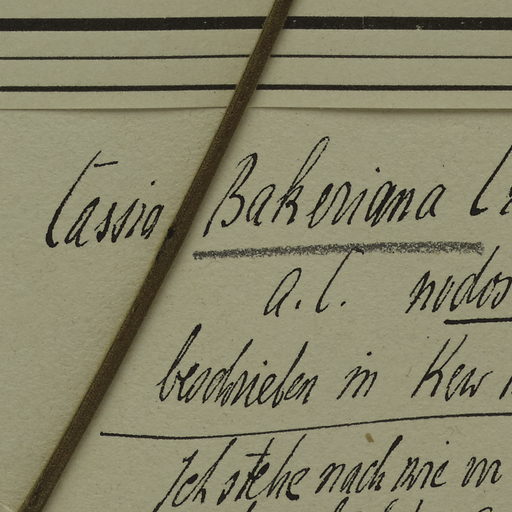 Cassia Bakeriana C
a. C. nodos
beschrieben in Kew
Ich stehe nach wie